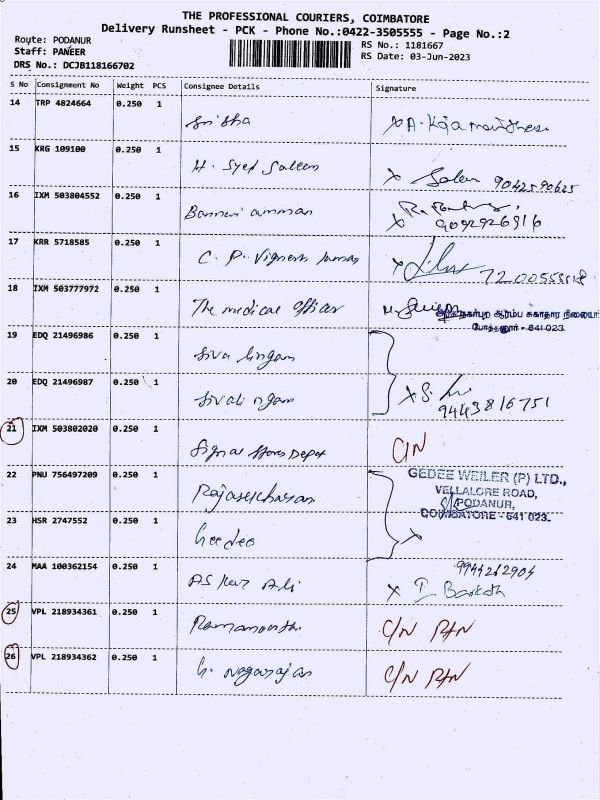 THE PROFESSIONAL COURIERS, COIMBATORE
Delivery Runsheet - PCK - Phone No.:0422-3505555 - Page No.:2
Route: PODANUR
Staff: PANEER
DRS No.: DCJB118166702
RS No.: 1181667
RS Date: 03-Jun-2023
S No Consignment No Weight PCS Consignee Details Signature
14 TRP 4824664 0.250 1 Srisha
15 KRG 109100 0.250 1 H. Syed Saleem X 9042590625
16 IXM 503804552 0.250 1 Bannari amman X 9092926916
17 KRR 5718585 0.250 1 C. P. Vignesh kumar X
18 IXM 503777972 0.250 1 The medical Officer
போத்தனூர் - 641 023.
19 EDQ 21496986 0.250 1 Siva lingam
20 EDQ 21496987 0.250 1 Sivalingam X S. 9443816751
21 IXM 503802020 0.250 1 Signal Stores Depot C/N
22 PNU 756497209 0.250 1 Rajasekharan
GEDEE WEILER (P) LTD.,
VELLALORE ROAD,
PODANUR,
COIMBATORE - 641 023.
23 HSR 2747552 0.250 1 Geedee X
24 MAA 100362154 0.250 1 Askar Ali 9944262904 X
25 VPL 218934361 0.250 1 Ramamoorthi C/N
26 VPL 218934362 0.250 1 G. Nagarajan C/N